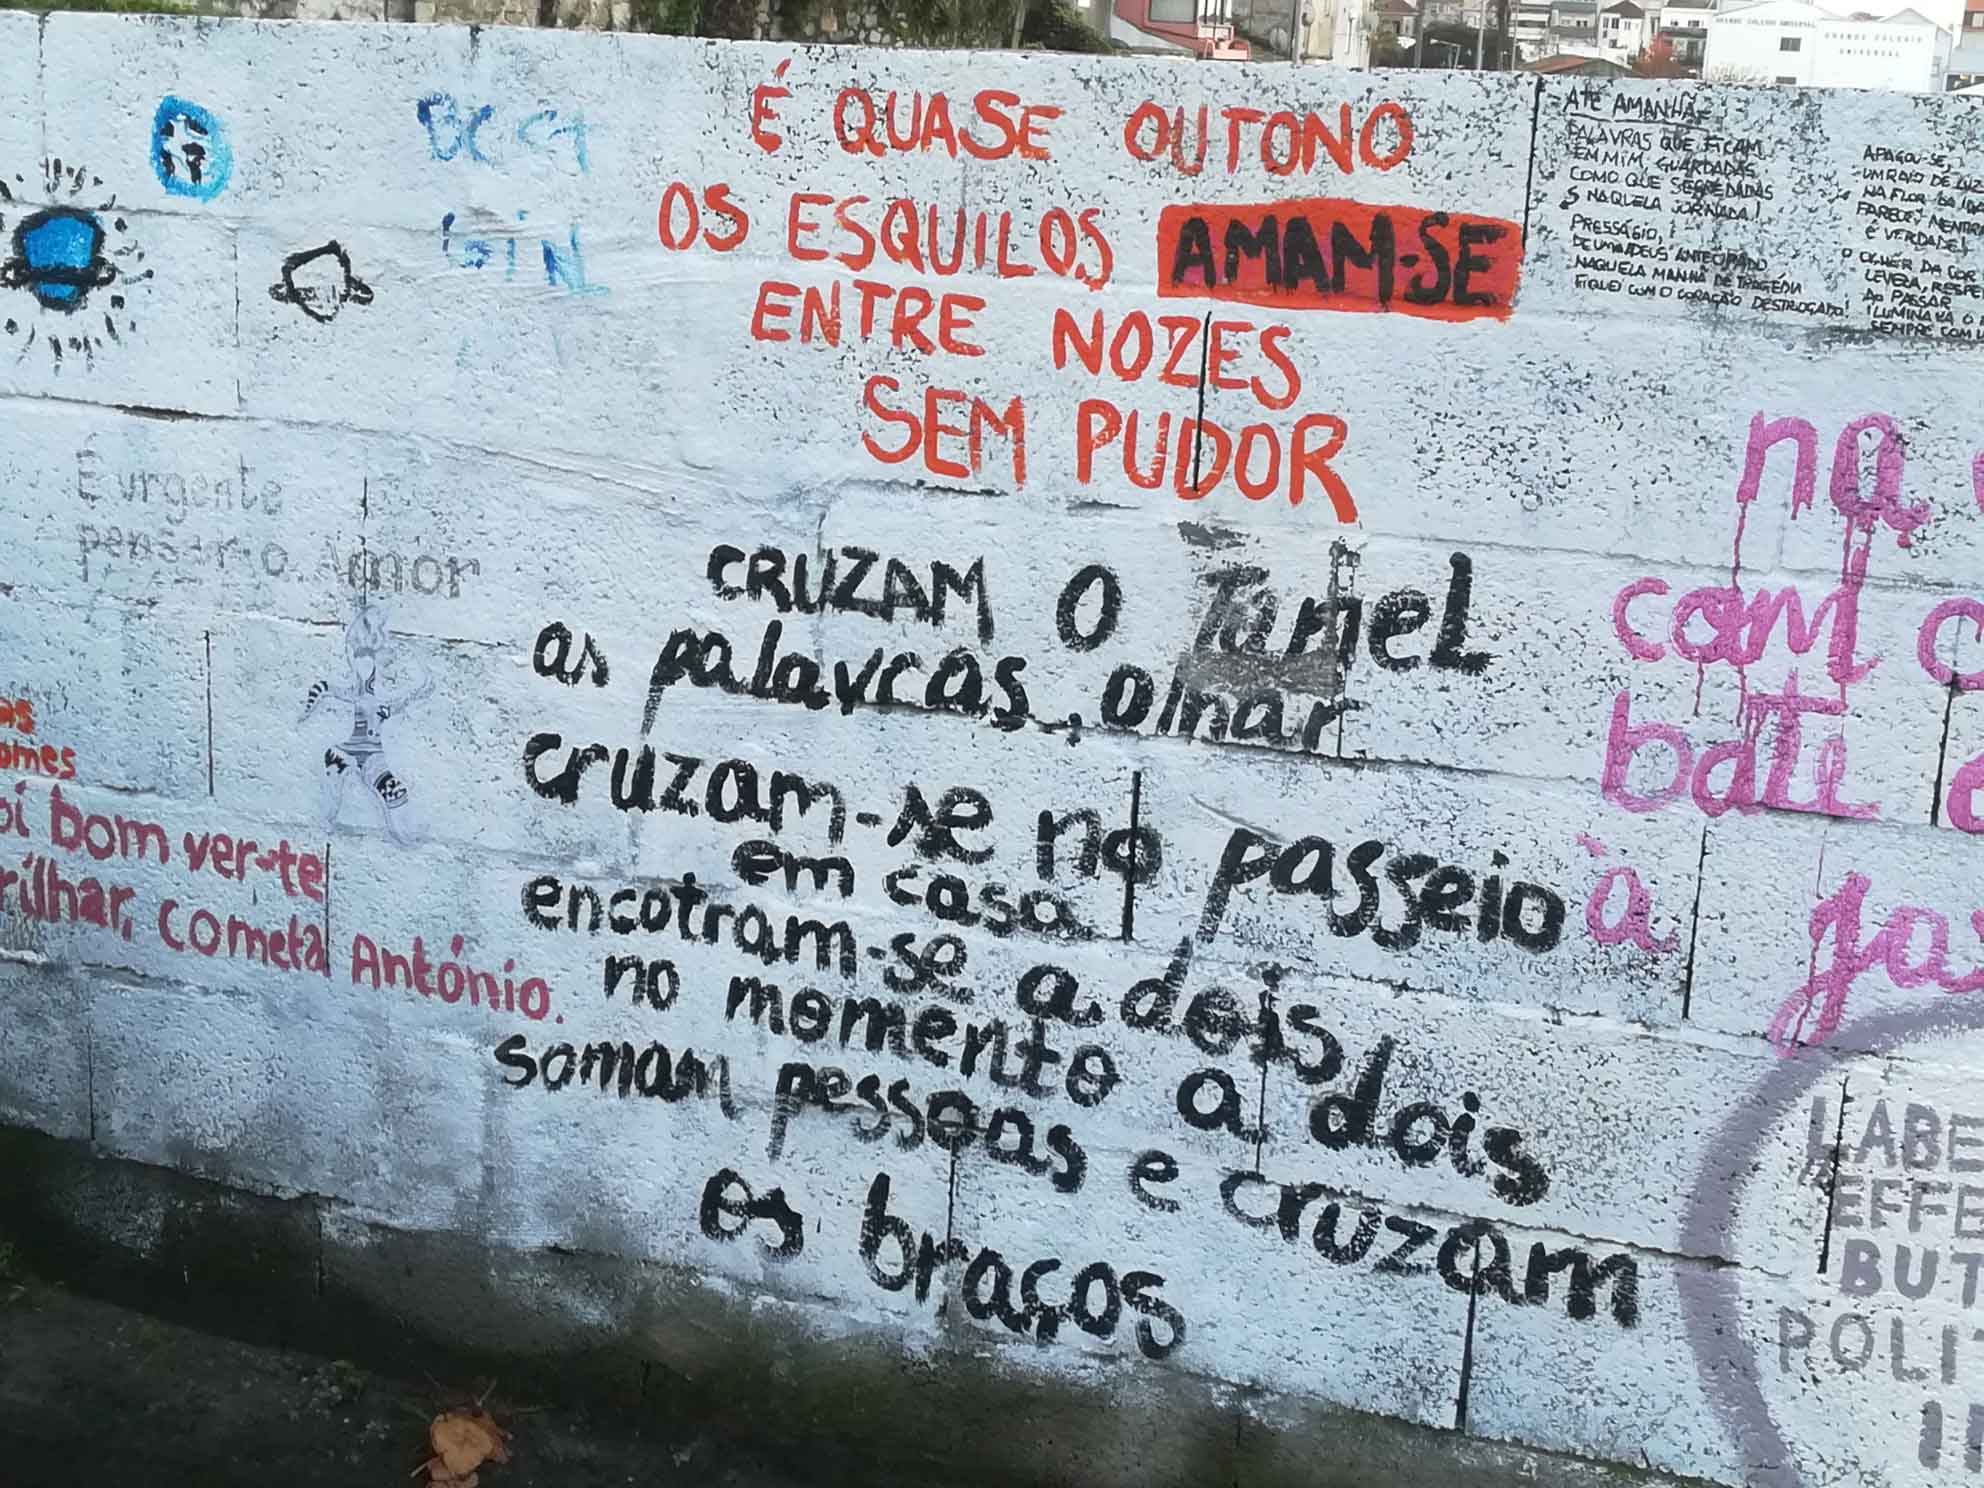 GRANDE COLEGIO
UNIVERSAL
É QUASE OUTONO
OS ESQUILOS AMAM-SE
ENTRE NOZES
SEM PUDOR
ATÉ AMANHÃ
PALAVRAS QUE FICAM
EM MIM, GUARDADAS
COMO QUE SEGREDADAS
NAQUELA JORNADA!
PRESSÁGIO,
DE UM ADEUS ANTECIPADO
NAQUELA MANHÃ DE TRAGÉDIA
FIQUEI COM O CORAÇÃO DESTROÇADO!
APAGOU-SE,
UM RAIO DE LUZ
NA FLOR DA
PARECE! MENTIRA
É VERDADE!
O OLHER DA COR
LEVEZA, RESPE
AO PASSAR
ILUMINAVA O
SEMPRE COM
É urgente
pensar o Amor
CRUZAM O TaneL
as palavras, olhar
cruzam-se no passeio
em casa
encotram-se a dois,
no momento a dois
somam pessoas e cruzam
os braços
as
omes
oi bom ver-te
rilhar, cometa António.
na
com
bate
à ja
LABE
EFFE
BUT
POLI